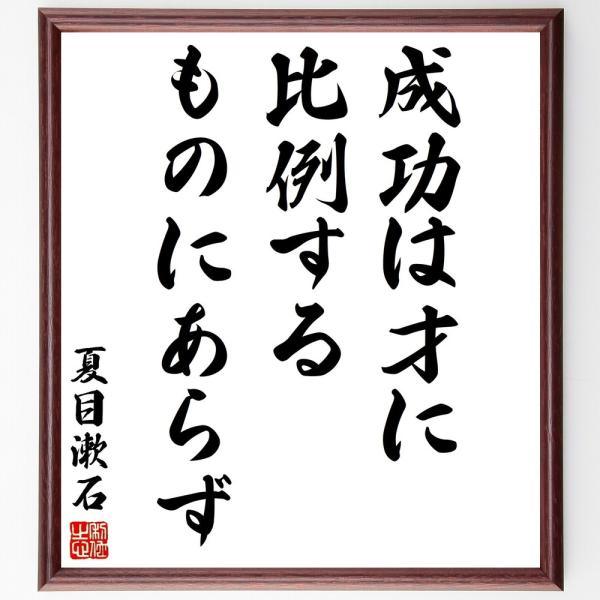 成功は才に
比例する
ものにあらず
夏目漱石